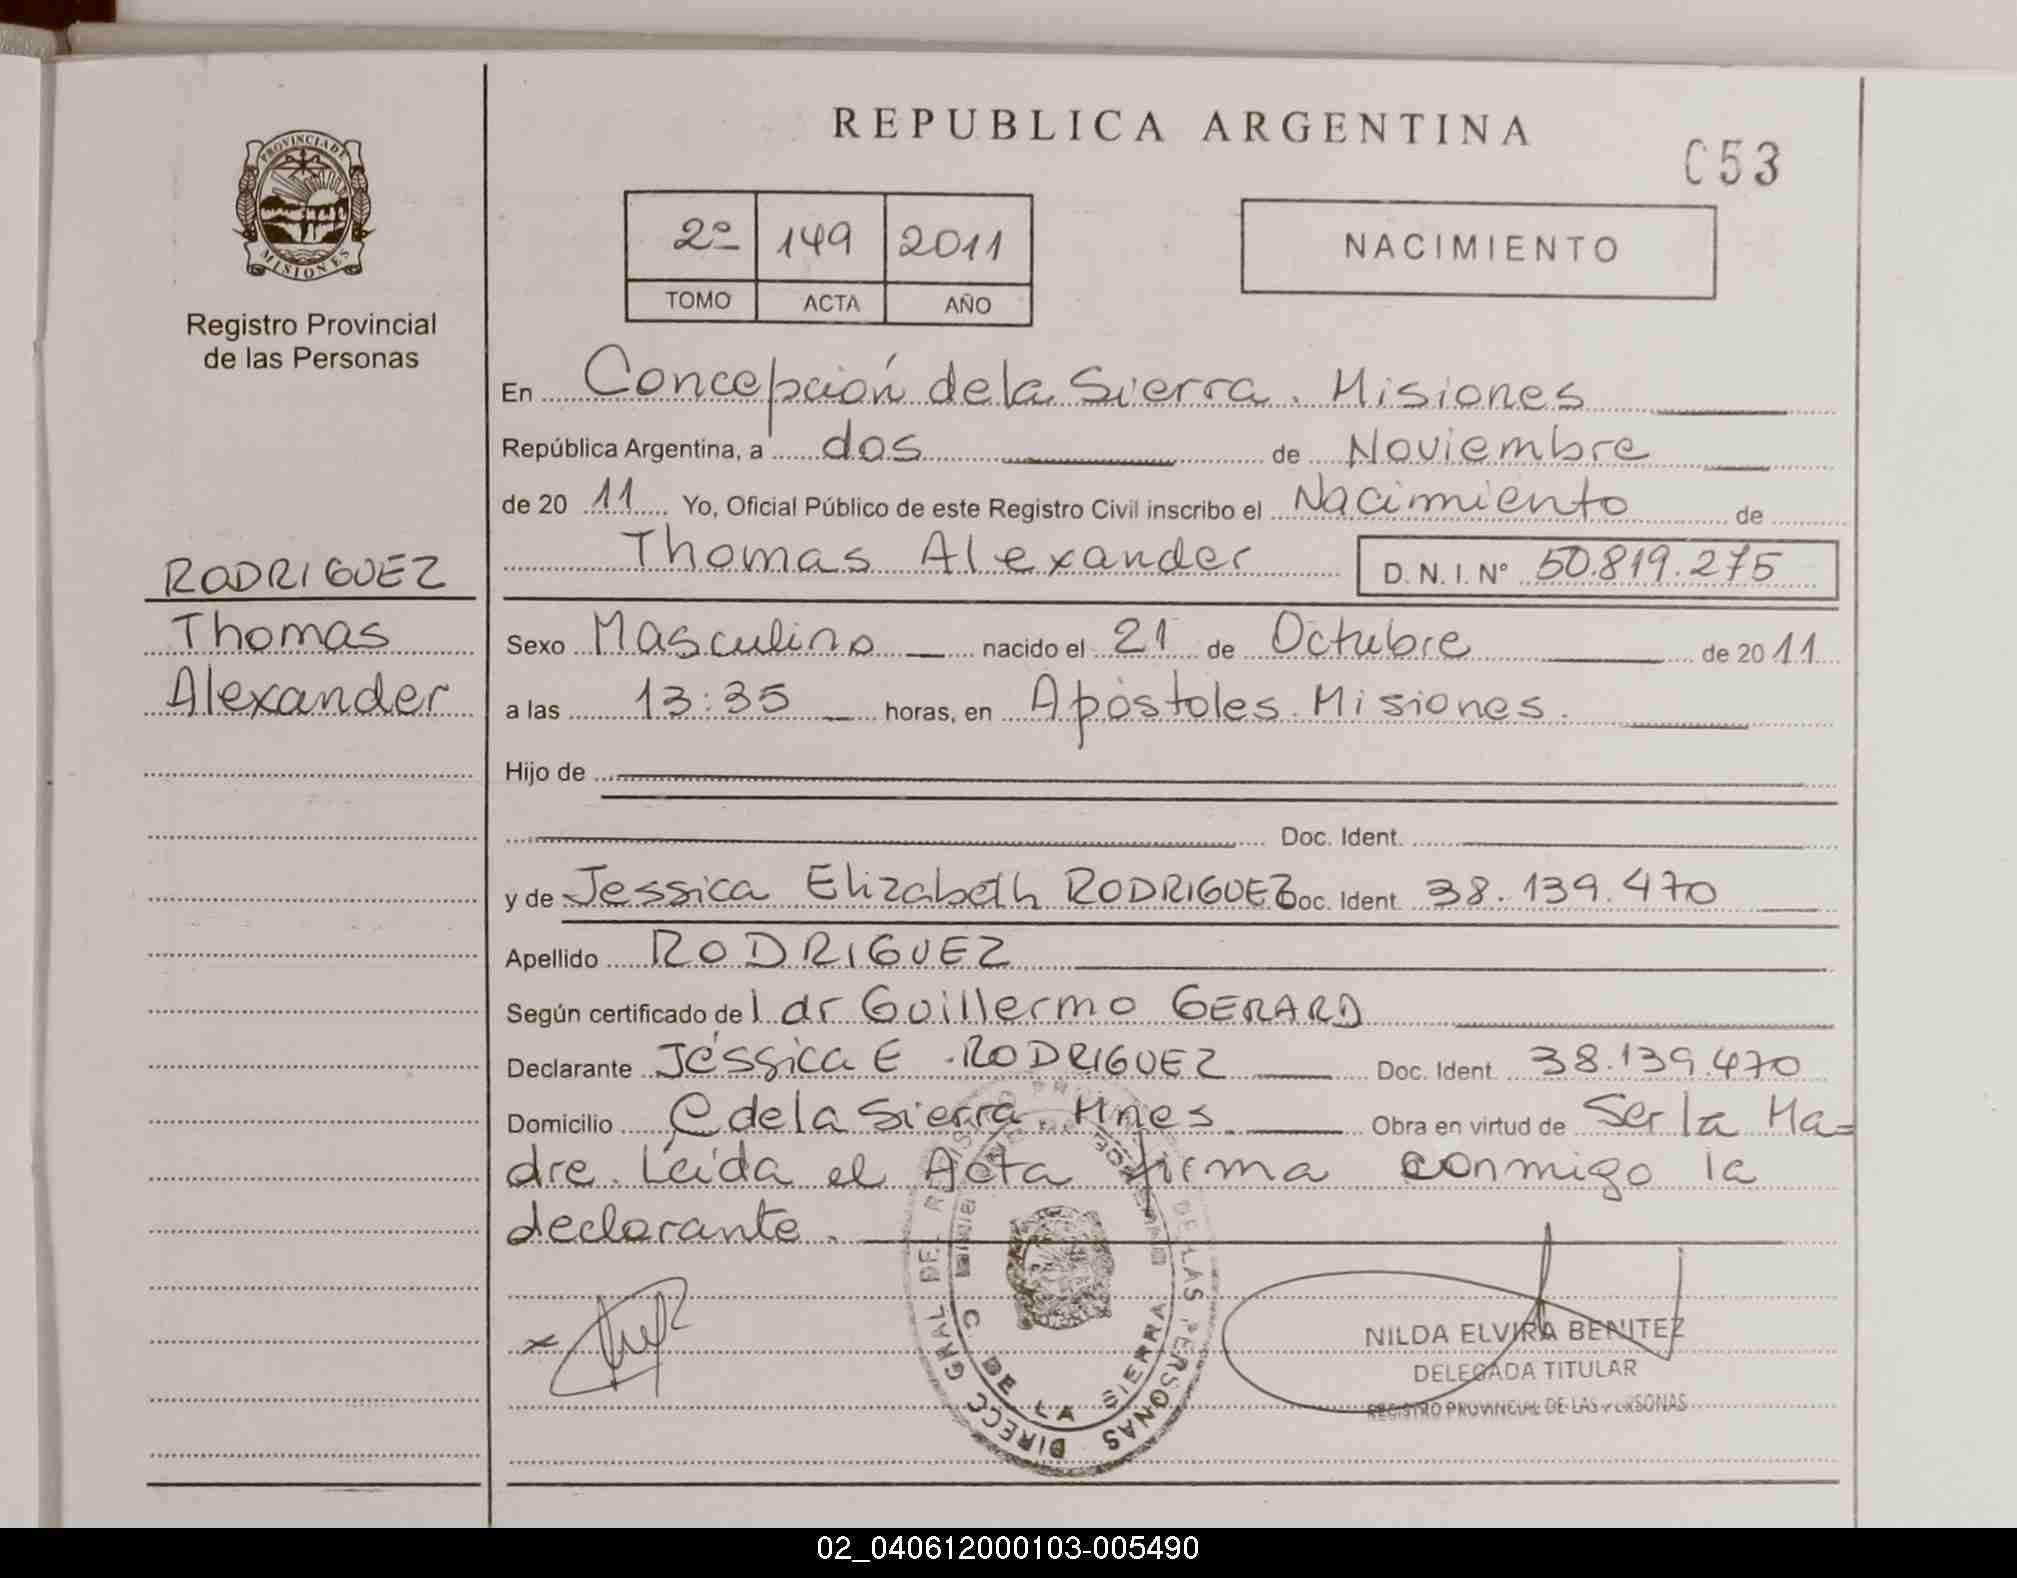 REPUBLICA ARGENTINA
C53
PROVINCIA DE MISIONES
Registro Provincial
de las Personas
2º 149 2011
TOMO ACTA AÑO
NACIMIENTO
En Concepción de la Sierra. Misiones
República Argentina, a dos de Noviembre
de 20 11 Yo, Oficial Público de este Registro Civil inscribo el Nacimiento de
Thomas Alexander D.N.I.Nº 50.819.275
RODRIGUEZ
Thomas
Alexander
Sexo Masculino nacido el 21 de Octubre de 2011
a las 13:35 horas, en Apóstoles. Misiones.
Hijo de
Doc. Ident.
y de Jessica Elizabeth RODRIGUEZ Doc. Ident. 38.139.470
Apellido RODRIGUEZ
Según certificado de l dr Guillermo GERARD
Declarante Jéssica E. RODRIGUEZ Doc. Ident. 38.139.470
Domicilio C de la Sierra Mnes. Obra en virtud de Ser la Ma=
dre. Leída el Acta firma conmigo la
declarante.
DIRECC GRAL DEL REGISTRO DE LAS PERSONAS
C. DE LA SIERRA
NILDA ELVIRA BENITEZ
DELEGADA TITULAR
REGISTRO PROVINCIAL DE LAS PERSONAS
02_040612000103-005490